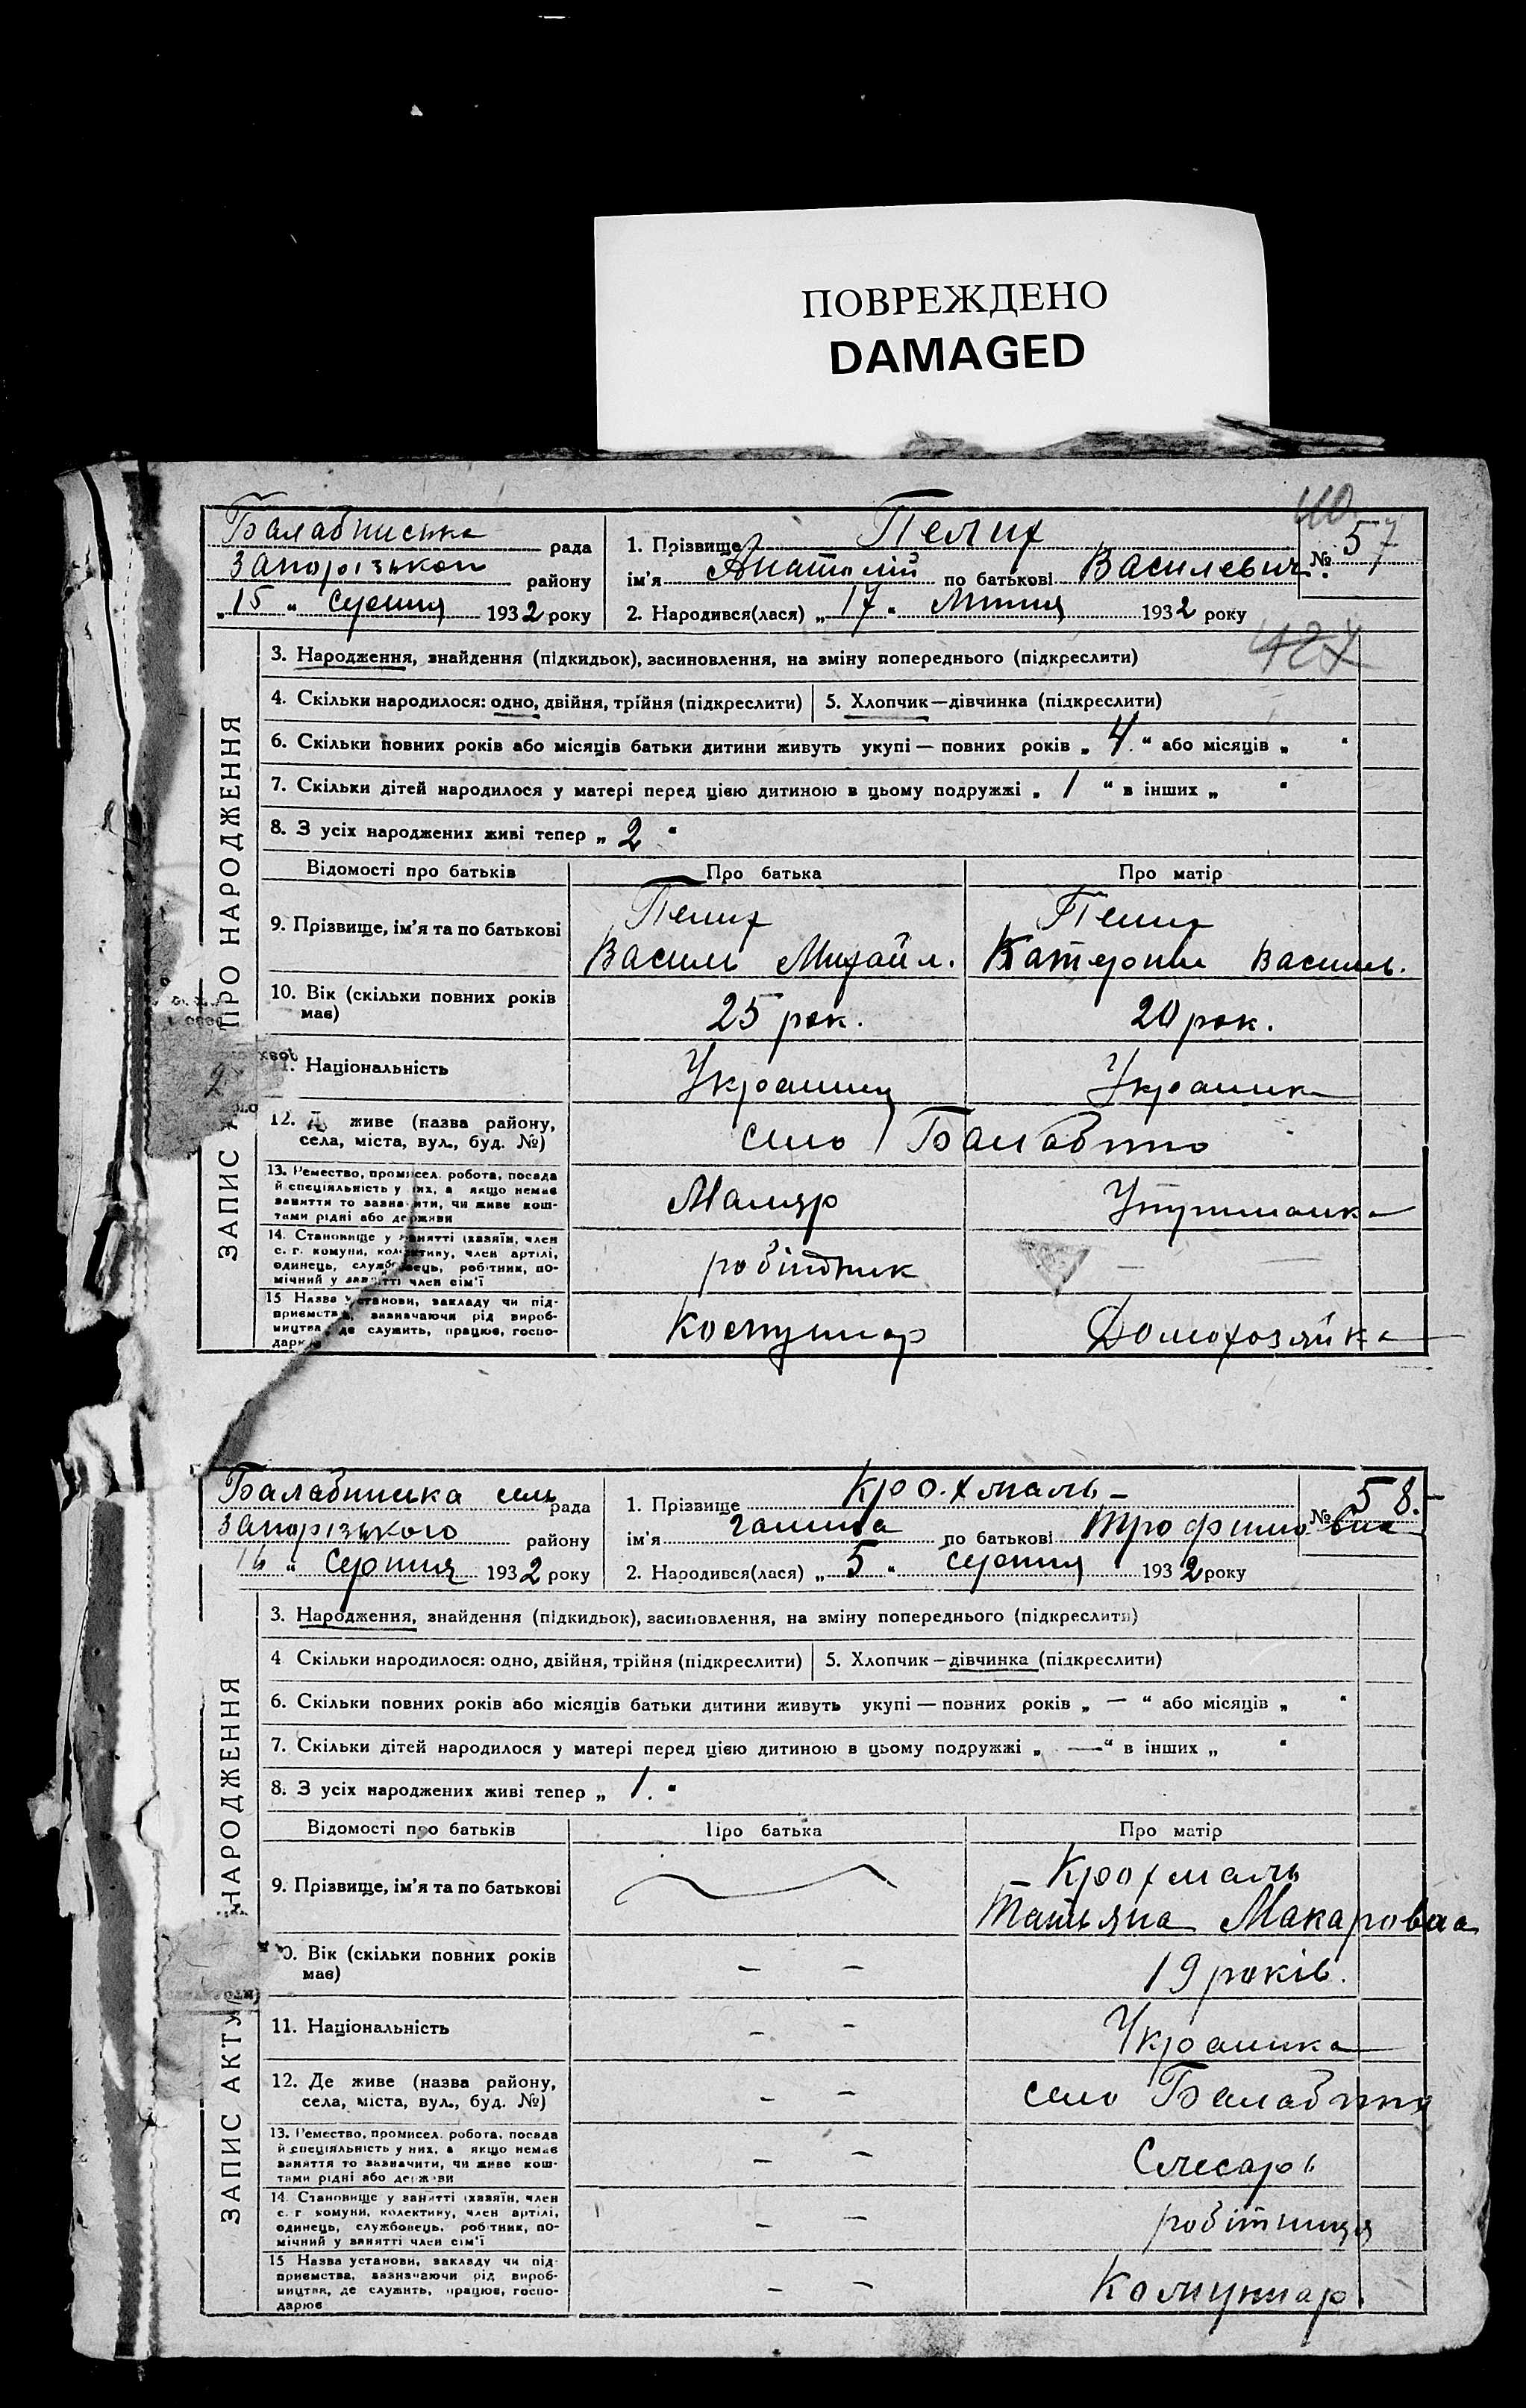 ПОВРЕЖДЕНО
DAMAGED
40.
Балабинська рада
Запорізького району
„15 „ Серпня 1932 року
1. Прізвище Пелих
ім’я Анатолій по батькові Василевич.
№ 57
2. Народився(лася) „ 17 „ Липня 1932 року
3. Народження, знайдення (підкидьок), засиновлення, на зміну попереднього (підкреслити)
4. Скільки народилося: одно, двійня, трійня (підкреслити) 5. Хлопчик—дівчинка (підкреслити)
6. Скільки повних років або місяців батьки дитини живуть укупі — повних років „ 4. “ або місяців „ “
7. Скільки дітей народилося у матері перед цією дитиною в цьому подружжі „ 1 “ в інших „ “
8. З усіх народжених живі тепер „ 2 “
ЗАПИС ПРО НАРОДЖЕННЯ
Відомості про батьків Про батька Про матір
9. Прізвище, ім’я та по батькові
Пелих Пелих
Василь Михайл. Катерина Василь.
10. Вік (скільки повних років має) 25 рок. 20 рок.
11. Національність Українець Українка
12. Де живе (назва району,
села, міста, вул., буд. №) село Балабино
13. Ремество, промисел. робота, посада
й спеціяльність у них, а якщо немає
заняття то зазначити, чи живе кош-
тами рідні або держави
Маляр Утриманка
14. Становище у занятті (хазяїн, член
с. г. комуни, колективу, член артілі,
одинець, службовець, робітник, по-
мічний у занятті член сім’ї
робітник —
15 Назва установи, закладу чи під-
приємства, зазначаючи рід вироб-
ництва, де служить, працює, госпо-
дарює
Комунар Домохозяйка
Балабинська сель рада
Запорізького району
16 “ Серпня 1932 року
1. Прізвище Крохмаль –
ім’я Галина по батькові Трофимовна
№ 58.
2. Народився(лася) „ 5 „ Серпня 1932 року
3. Народження, знайдення (підкидьок), засиновлення, на зміну попереднього (підкреслити)
4 Скільки народилося: одно, двійня, трійня (підкреслити) 5. Хлопчик — дівчинка (підкреслити)
6. Скільки повних років або місяців батьки дитини живуть укупі — повних років „ — “ або місяців „ “
7. Скільки дітей народилося у матері перед цією дитиною в цьому подружжі „ — “ в інших „ “
8. З усіх народжених живі тепер „ 1. “
ЗАПИС АКТУ НАРОДЖЕННЯ
Відомості про батьків Про батька Про матір
9. Прізвище, ім’я та по батькові
Крохмаль
Татьяна Макаровна
10. Вік (скільки повних років має) – – 19 років.
11. Національність – – Українка
12. Де живе (назва району,
села, міста, вул., буд. №) – – село Балабино
13. Ремество, промисел. робота, посада
й спеціяльність у них, а якщо немає
заняття то зазначити, чи живе кош-
тами рідні або держави
– – Слесарь
14. Становище у занятті (хазяїн, член
с. г. комуни, колективу, член артілі,
одинець, службовець, робітник, по-
мічний у занятті член сім’ї
– – робітниця
15 Назва установи, закладу чи під-
приємства, зазначаючи рід вироб-
ництва, де служить, працює, госпо-
дарює
– – Комунар.